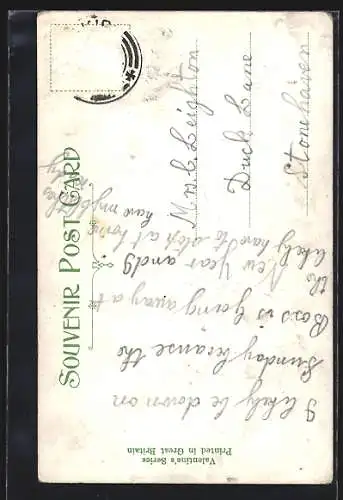 SOUVENIR POST CARD
I likely be down on
Sunday because the
Boss is going away at
the New Year and I
likely have to stop at home
have my
Mrs C. Leighton
Duck Lane
Stonehaven
Valentine's Series
Printed in Great Britain